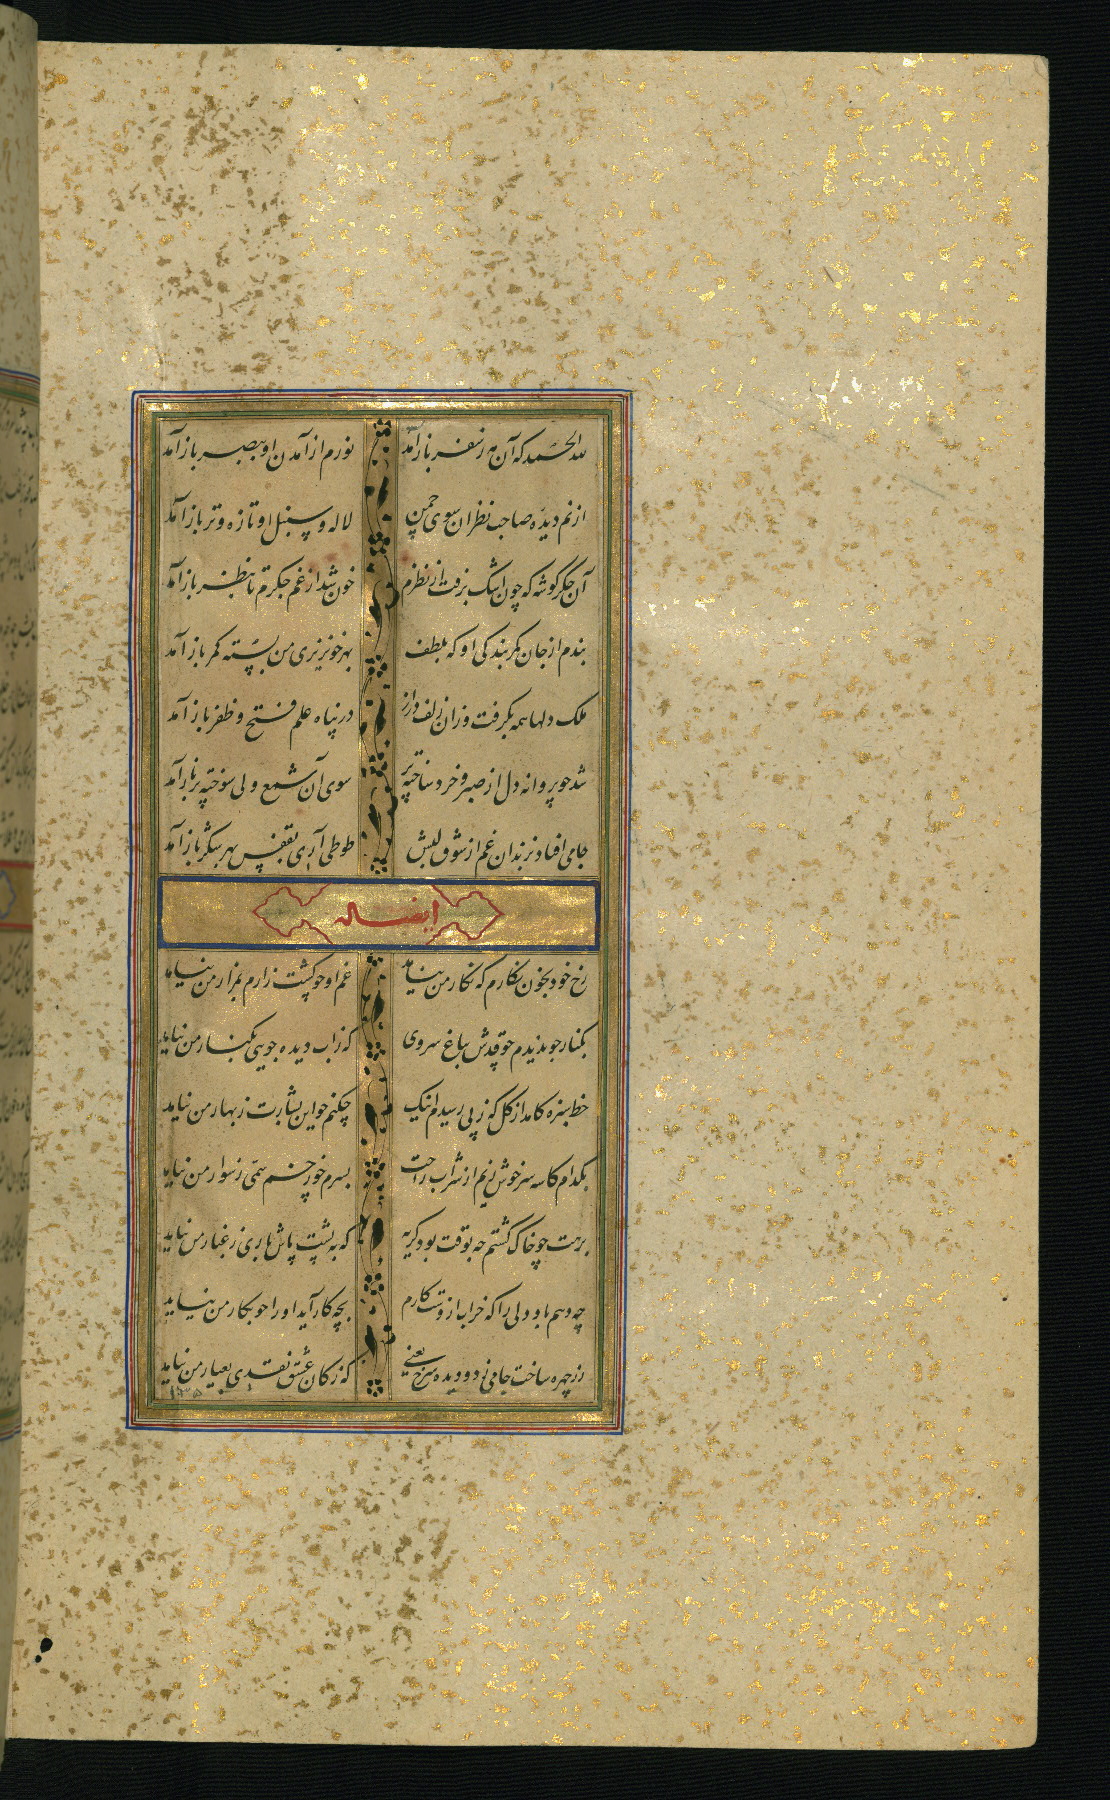 لله الحمد که آن مه ز سفر باز آمد نورم از آمدن او ببصر باز آمد
از نم دیده صاحب نظران سوی چمن لاله و سنبل او تازه و تر باز آمد
آن جگر گوشه که چون اشک برفت از نظرم خون شد از غم جگرم تا بنظر باز آمد
بندم از جان کمر بندگی او که بلطف بهر خونریزی من بسته کمر باز آمد
ملک دلها همه بگرفت و زان زلف دراز در پناه علم فتح و ظفر باز آمد
شد چو پروانه دل از صبر و خرد ساخته پر سوی آن شمع ولی سوخته پر باز آمد
جامی افتاد بزندان غم از شوق لبش طوطی آری بقفس بهر شکر باز آمد
ایضا له
رخ خود بخون نگارم که نگار من نیامد غم او چو کشت زارم بمزار من نیامد
بکنار جو ندیدم چو قدش بباغ سروی که ز آب دیده جویی بکنار من نیامد
خط سبزه کامد از گل که ز پی رسیدم اینک چکنم چو این بشارت ز بهار من نیامد
بکدام کاسه سر خوش زیم از شراب راحت بسرم چو زخم سمی ز سوار من نیامد
برهت چو خاک گشتم چه بوقت بود گریه که به پشت پاش باری ز غبار من نیامد
چه دهم باو دلی را که خراب ازوست کارم بچه کار آید او را چو بکار من نیامد
زر چهره ساخت جامی ز دو دیده سرخ یعنی که ز کان عشق نقدی بعیار من نیامد